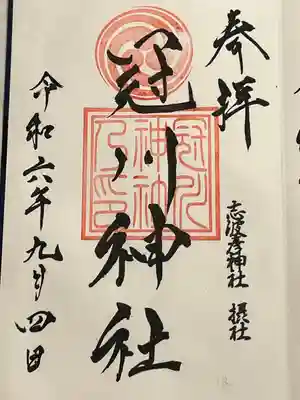 奉拝
志波彦神社 摂社
冠川神社
冠川
神社
之印
令和六年九月四日